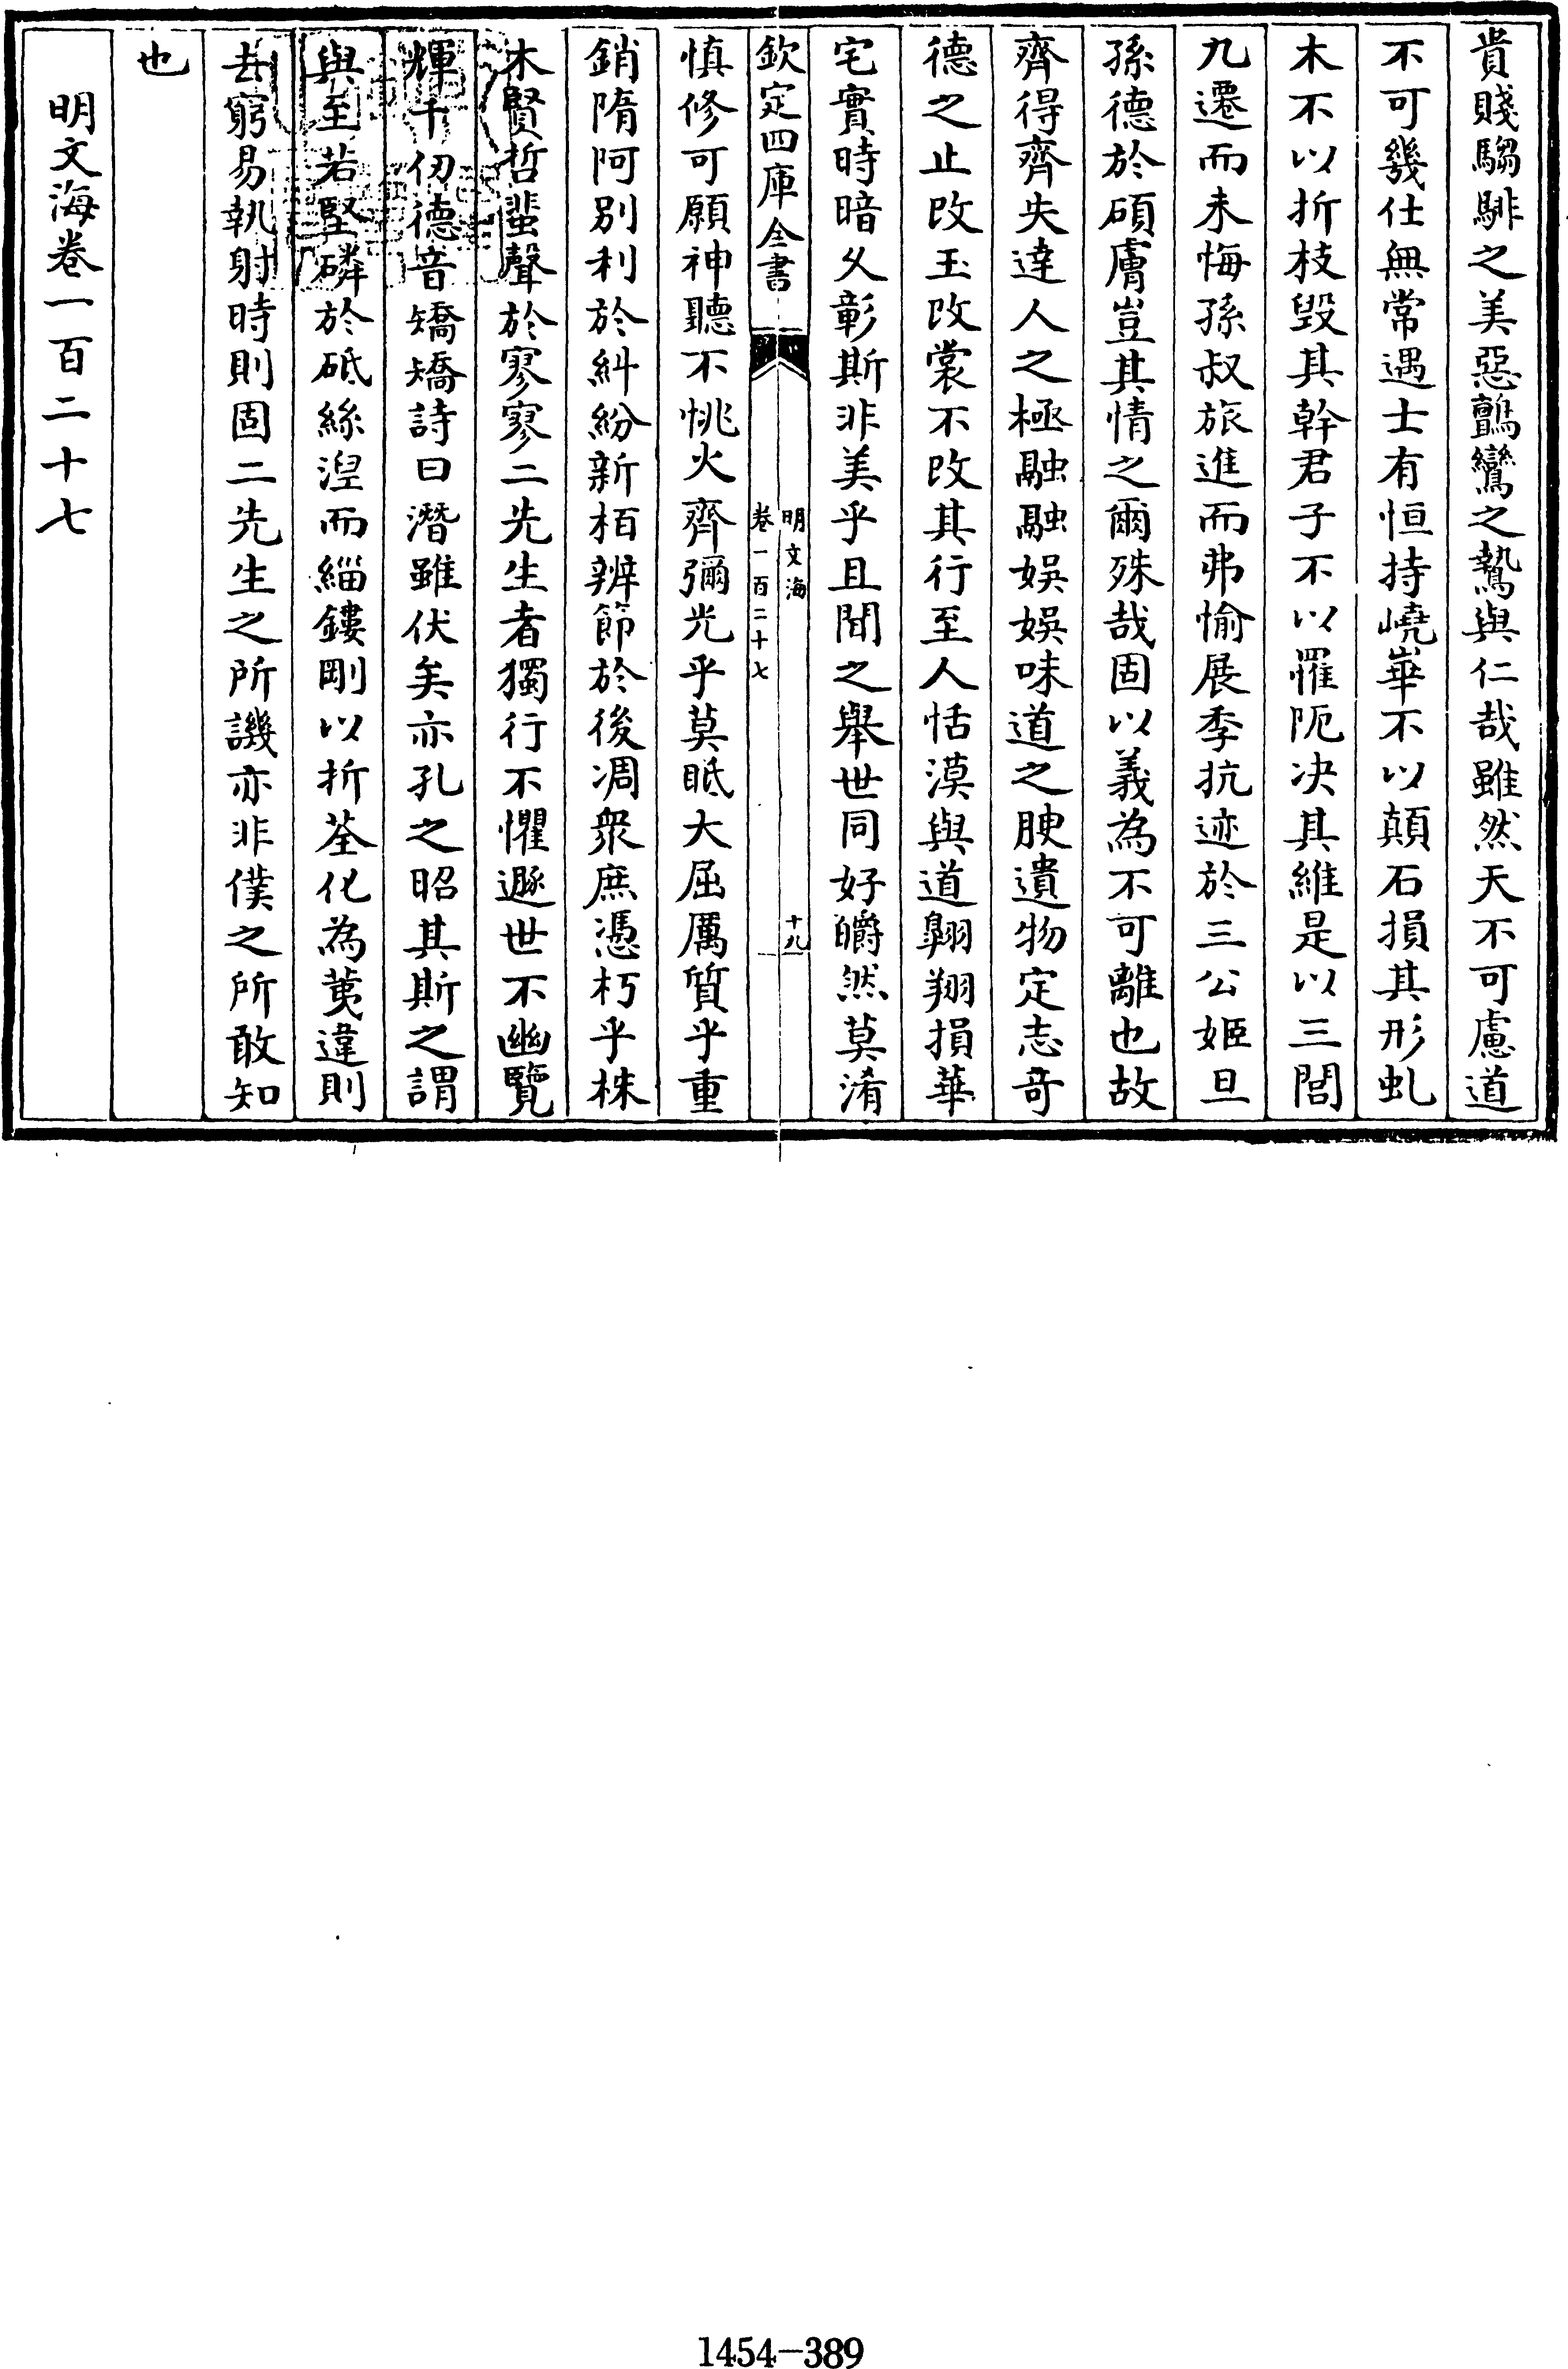 貴賤騶騑之美惡鸇鸞之鷙與仁哉雖然天不可慮道
不可幾仕無常遇士有恒持嶢崋不以顛石損其形虬
木不以折枝毀其幹君子不以罹阨决其維是以三閭
九遷而未悔孫叔旅進而弗愉展季抗迹於三公姬旦
孫德於碩膚豈其情之爾殊哉固以義為不可離也故
齊得齊失達人之極融融娛娛味道之腴遺物定志竒
德之止改玉改裳不改其行至人恬漠與道翺翔損華
宅實時暗乆彰斯非美乎且聞之舉世同好皭然莫淆
欽定四庫全書
明文海
卷一百二十七
十九
慎修可願神聽不恌火齊彌光乎莫眂大屈厲質乎重
銷隋阿别利於糾紛新栢辨節於後凋衆庶憑朽乎株
木賢哲蜚聲於寥寥二先生者獨行不懼遯世不幽覽
輝千仞德音矯矯詩曰潛雖伏矣亦孔之昭其斯之謂
與至若堅磷於砥絲湼而緇鏤剛以折荃化為荑違則
去窮易執射時則固二先生之所譏亦非僕之所敢知
也
明文海卷一百二十七
1454-389